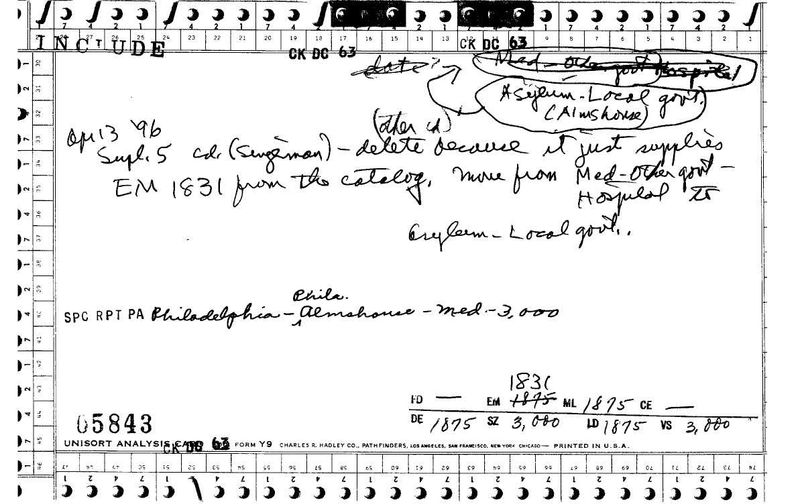 INCTUDE
CK DC 63
CK DC 63
date?
Med - Other govt Hospital
Asylum - Local govt.
(Almshouse)
Apr 13 '96
(other cd)
Supl. 5 cd. (Singerman) - delete because it just supplies
EM 1831 from the catalog. Move from Med-Other govt -
Hospital to
Asylum - Local govt..
Phila.
SPC RPT PA Philadelphia - Almshouse - Med. - 3,000
1831
FD — EM 1875 ML 1875 CE —
DE 1875 SZ 3,000 LD 1875 VS 3,000
05843
UNISORT ANALYSIS CARD FORM Y9 CHARLES R. HADLEY CO., PATHFINDERS, LOS ANGELES, SAN FRANCISCO, NEW YORK CHICAGO — PRINTED IN U.S.A.
CK DC 63